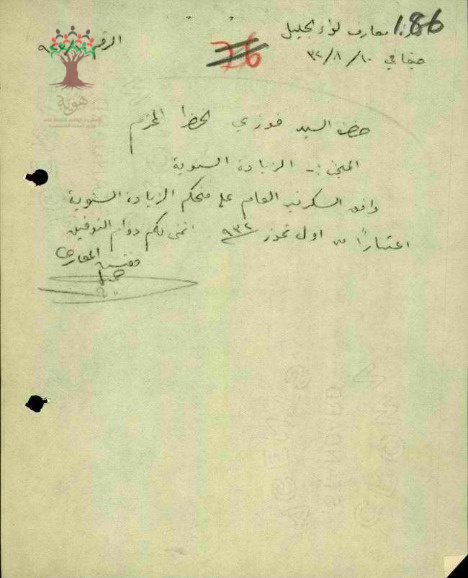 186
معارف لواء الجليل
الرقم
صيفا في ١٠/٨/٣٢
26
هوية
حضرة السيد فوزي الخضرا المحترم
المبحث :- الزيادة السنوية
وافق السكرتير العام على منحكم الزيادة السنوية
اعتباراً من اول تموز ٩٣٢ اتمنى لكم دوام التوفيق
مفتش المعارف